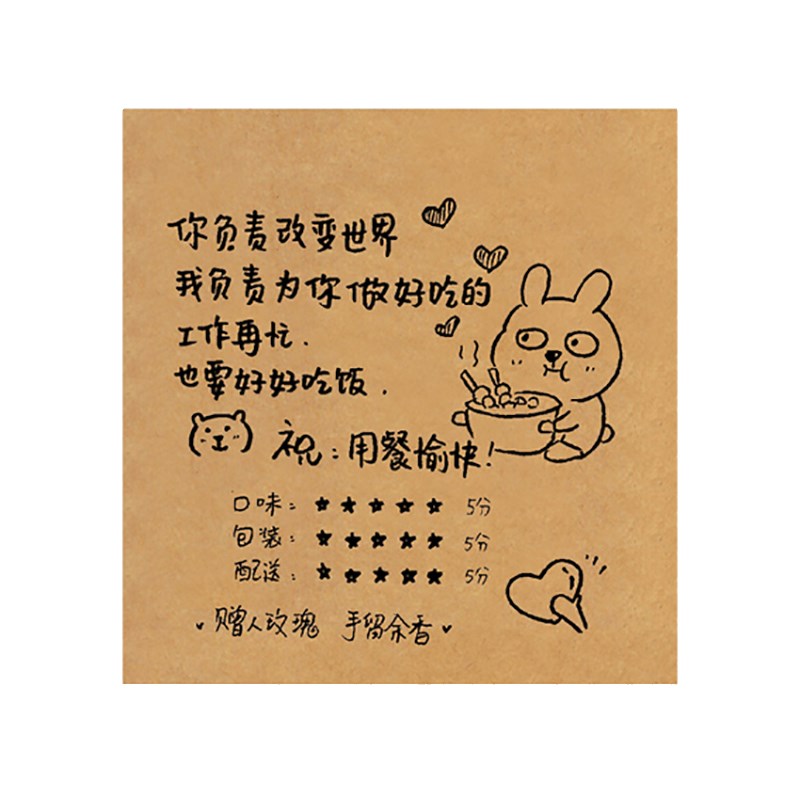 你负责改变世界
我负责为你做好吃的
工作再忙.
也要好好吃饭.
祝:用餐愉快!
口味: ★ ★ ★ ★ ★ 5分
包装: ★ ★ ★ ★ ★ 5分
配送: ★ ★ ★ ★ ★ 5分
赠人玫瑰 手留余香